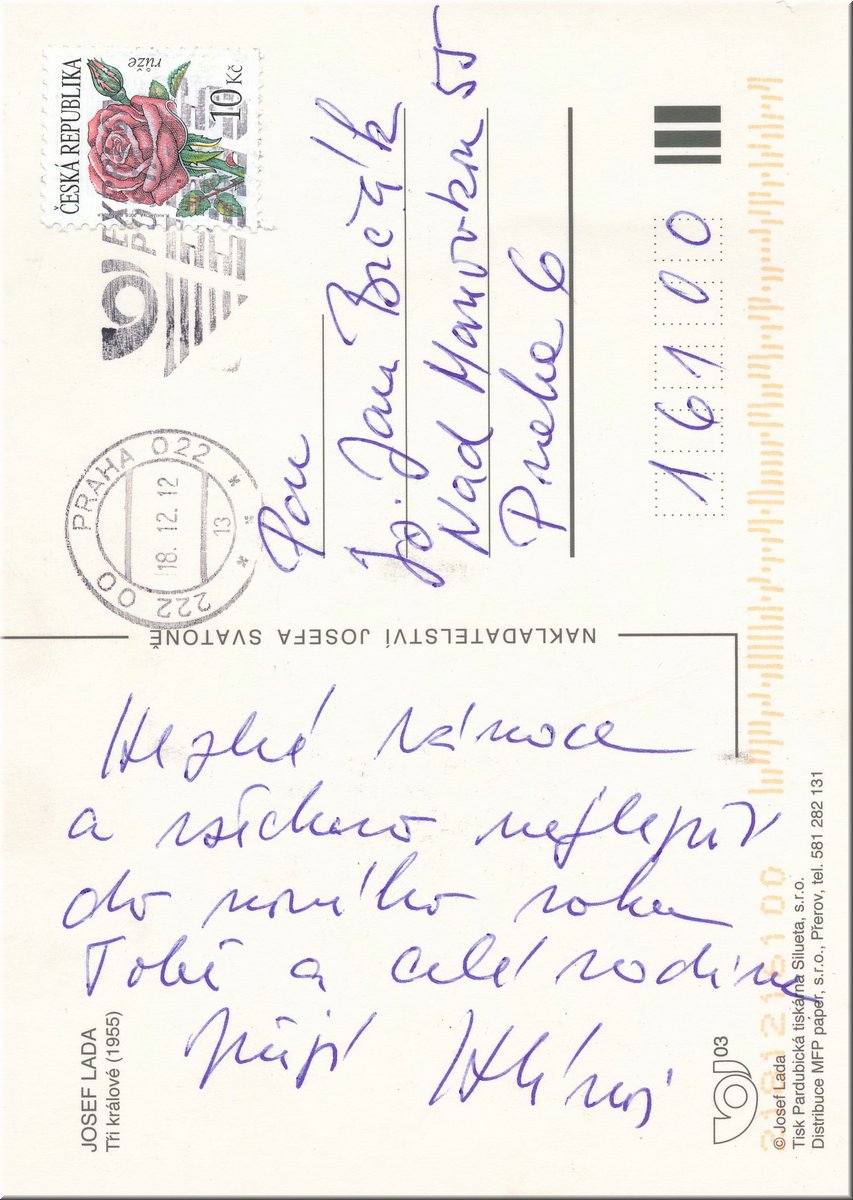 Hezké vánoce
a všechno nejlepší
do nového roku
Tobě a celé rodině
přejí
JOSEF LADA
Tři králové (1955)
NAKLADATELSTVÍ JOSEFA SVATONĚ
ČESKÁ REPUBLIKA
růže
10 Kč
PRAHA 022
18.12.12
13
222 00
Pan
Jan
Nad Manovkou 55
Praha 6
161 00
03
© Josef Lada
Tisk Pardubická tiskárna Silueta, s.r.o.
Distribuce MFP paper, s.r.o., Přerov, tel. 581 282 131